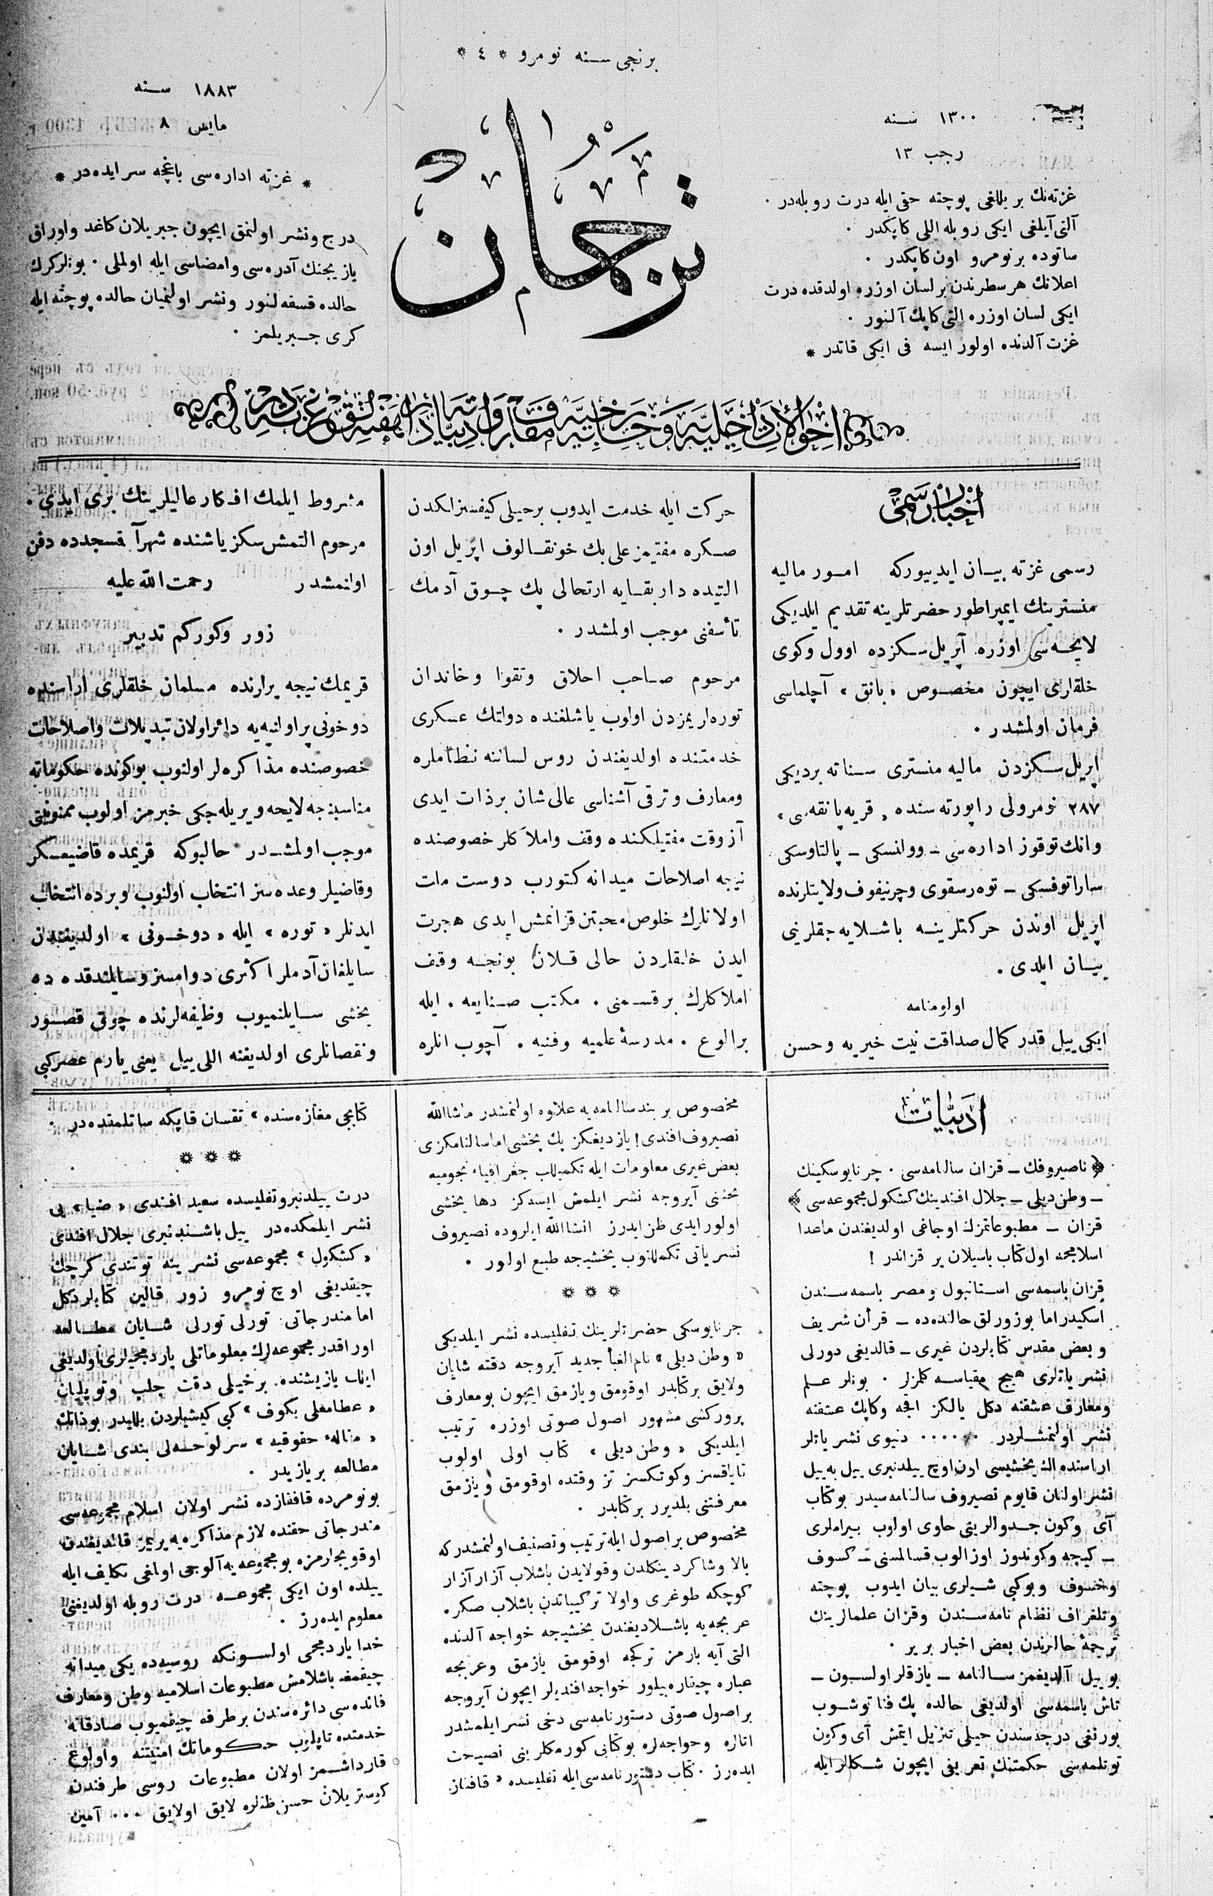 برنجی سنه نومرو * ٤ *
١٣٠٠ سنه
رجب ١٣
غزته‌نك بر ییللغی پوچته حقی ایله درت روبله‌در .
آلتی آیلغی ایکی روبله اللی کاپکدر .
صاتوده بر نومرو اون کاپکدر .
اعلانك هر سطرندن بر لسان اوزره اولدقده درت
ایکی لسان اوزره التی کاپك آلنور .
غزت آلدنده اولور ایسه فی ایکی قاتدر *
ترجمان
١٨٨٣ سنه
مایس ٨
* غزته اداره‌سی باغچه سرایده‌در *
درج و نشر اولنمق ایچون جبریلان کاغد و اوراق
یازیجینك آدره‌سی و امضاسی ایله اولملی . بونلر کرك
حالده قسقه لنور و نشر اولنمیان حالده پوچته ایله
کری جبریلمز .
اخبار رسمی
رسمی غزته بیان ایدیورکه امور مالیه
منستیرینك ایمپراطور حضرتلرینه تقدیم ایلدیکی
لایحه‌سی اوزره آپریل سکزده اوول وکوی
خلقلری ایچون مخصوص «بانق» آچلماسی
فرمان اولمشدر .
اپریل سکزدن مالیه منستری سناته بردیکی
٢٨٧ نومرولی راپورته سنده , قریه پانقه‌سی ,
وانك توقوز اداره‌سی – وولنسکی – پالتاوسکی
ساراتوفسکی – توه‌رسقوی وچرنیفوف ولایتلرنده
اپریل اوندن حرکتلرینه باشلایه‌جقلرینی
بیان ایلدی .
اولومنامه
ایکی ییل قدر کمال صداقت نیت خیریه و حسن
حرکت ایله خدمت ایدوب برحیلی کیفسزلکدن
صکره مفتیمز علی بك خونقالوف اپریل اون
التیده دار بقایه ارتحالی پك چوق آدمك
تأسفنی موجب اولمشدر .
مرحوم صاحب احلاق وتقوا وخاندان
توره‌لریمزدن اولوب یاشلغنده دولتك عسکری
خدمتنده اولدیغندن روس لساننه نظاملره
ومعارف و ترقی آشناسی عالی شان برذات ایدی
آز وقت مفتیلکنده وقف واملاکلر خصوصنده
نیجه اصلاحات میدانه کتورب دوست مات
اولانلرك خلوص محبتن قزانمش ایدی هجرت
ایدن خلقلردن حالی قلان بونجه وقیف
املاکلرك بر قسمنی . مکتب صنایعه . ایله
برالوع . مدرسهٔ علمیه وفنیه . آچوب انلره
مشروط ایلمك افکار عالیلرینك بری ایدی .
مرحوم التمش سکز یاشنده شهرآ قسجدده دفن
اولنمشدر رحمت الله علیه
زور وکورکم تدبیر
قریمك نیجه یرلرنده مسلمان خلقلری اراسنده
دوخونی پراولنیه‌یه دائر اولان تبدیلات واصلاحات
خصوصنده مذاکره‌لر اولنوب بوکونده حکوماته
مناسبنجه لایحه ویریله‌جکی خبرمز اولوب ممنونیتی
موجب اولمشدر حالبوکه قریمده قاضیعسکر
وقاضیلر وعده‌سز انتخاب اولنوب وبرده انتخاب
ایدنلر «توره» ایله «دوخونی» اولدیغندن
سایلغان آدملر اکثری دوامسز وسایلندقده ده
یخشی سایلنمیوب وظیفه‌لرنده چوق قصور
ونقصانلری اولدیغنه اللی ییل یعنی یارم عصرکبی
ادبیات
﴿ ناصیروفك – قزان سالنامه‌سی . چرنایوسکینك
– وطن دیلی – جلال افندینك کشکول مجموعه‌سی ﴾
قزان – مطبوعاتمزك اوجاغی اولدیغندن ماعدا
اسلامجه اول کتاب باسیلان یر قزاندر !
قزان باسمه‌سی استانبول و مصر باسمه سندن
اسکیدر اما بوزورلق حالنده‌ده – قرآن شریف
و بعض مقدس کتابلردن غیری – قالدیغی دورلی
نشر یاتلری هیچ مقیاسه کلمزلر . بونلر علم
ومعارف عشقنه دکل یالکز اقچه وکاپك عشقنه
نشر اولنمشلردر ...... دنیوی نشر یاتلر
اراسنده الك یخشیسی اون اوچ ییلدنبری ییل به ییل
نشر اولنان قایوم نصیروف سالنامه سیدر بو کتاب
آی وکون جدوالرینی حاوی اولوب بیراملری
– کیچه وکوندوز اوزالوب قسالمسنی – کسوف
وخسوف وبوکبی شیلری بیان ایدوب پوچته
وتلغراف نظام نامه سندن وقزان علمالرینك
ترجمهٔ حالرندن بعض اخبار بریر .
بو ییل آلدیغمز سالنامه – یازقلر اولسون –
تاش باسمه‌سی اولدیغی حالده پك فنا توشوب
بورنغی درجه سندن حیلی تنزیل ایتمش آی وکون
توتلمه‌سی حکمتنك تعریفی ایچون شکللر ایله
مخصوص بر بند سالنامه یه علاوه اولنمشدر ماشاالله
نصیروف افندی ! یازدیغکز پك یخشی اما سالنامکزی
بعض غیری معلومات ایله تکمیللب جغرافیاء نجومیه
بحثنی آیروجه نشر ایلمش ایسه‌کز دها یخشی
اولور ایدی ظن ایدرز انشاالله ایلروده نصیروف
نشریاتی تکمللنوب یخشیجه طبع اولور .
* * *
چرنایوسکی حضرتلرینك تفلیسده نشر ایلدیکی
« وطن دیلی » نام الفبأ جدید آیروجه دقته شایان
ولایق برکتابدر اوقومق ویازمق ایچون بومعارف
پرورکشی مشهور اصول صوتی اوزره ترتیب
ایلدیکی «وطن دیلی» کتاب اولی اولوب
تایاقسز وکوتکسز تز وقتده اوقومق و یازمق
معرفتنی بلدیرر برکتابدر .
مخصوص بر اصول ایله ترتیب وتصنیف اولنمشدرکه
بالا وشاکرد ینکلدن وقولایدن باشلاب آزار آزار
کوچکه طوغری واولا ترکیباتدن باشلاب صکره
عربجه‌یه باشلادیغندن یخشیجه خواجه آلدنده
التی آیه بارمز ترکجه اوقومق یازمق وعربجه
عباره چیتاره بیلور خواجه افندیلر ایچون آیروجه
بر اصول صوتی دستورنامه‌سی دخی نشر ایلمشدر
اتاره وخواجه‌لره بوکتابی کورمکلر بنی نصیحت
ایده‌رز . کتاب دستورنامه‌سی ایله تفلیسده « قافقاز
کتابجی مغازه‌سنده » تقسان قاپکه ساتلمقده‌در .
* * *
درت ییلدنبرو تفلیسده سعید افندی « ضیا » یی
نشر ایلمکده‌در ییل باشندنبری جلال افندی
« کشکول » مجموعه‌سی نشرینه توتندی کرچك
چیقدیغی اوچ نومرو زور قالین کتابلر دکل
اما مندرجاتی تورلی تورلی شایان مطالعه
اوراقدر مجموعه‌لرك معلوماتلی یاردمجیلری اولدیغی
ایناب یازیشنده . برخیلی دقت جلب وتوپلیان
« عطامعلی بکوف » کبی کیشیلردن بللیدر بوذاتك
« مناله حقوقیه » سرلوحه‌لی بندی شایان
مطالعه بر یازیدر .
بونومرده قافقازده نشر اولان اسلام مجموعه‌سی
مندرجاتی حقنده لازم مذاکره‌یه یریمز قالدیغندن
اوقویجلرمزه بو مجموعه‌یه آلوجی اولمغی تکلیف ایله
ییلده اون ایکی مجموعه درت روبله اولدیغنی
معلوم ایده‌رز .
خدا یاردمجی اولسونکه روسیه‌ده یکی میدانه
چیقمغه باشلامش مطبوعات اسلامیه وطن ومعارف
فائده‌سی دائره‌سندن برطرفه چیقمیوب صادقانه
خدمتده تاپلوب حکوماتك امنیتنه واولوغ
قارداشمز اولان مطبوعات روسی طرفندن
کوستریلان حسن ظنلره لایق اولایق ... آمین